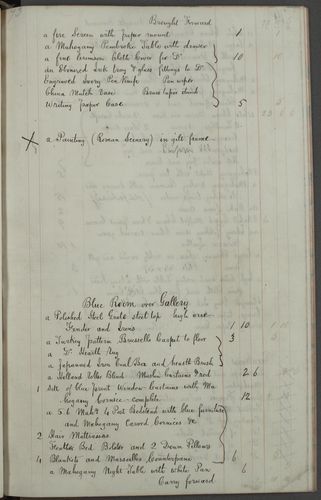 Brought Forward
a fire Screen with paper mount 1
a Mahogany Pembroke Table with drawer
a fine Crimson Cloth Cover for Do 10
an Ebonized Ink Tray & glass fittings to Do
Engraved Ivory Pen Knife Pen wiper
China Match Vase Brass taper stand
Writing Paper Case 5
X a Painting (Roman Scenery) in gilt frame
Blue Room over Gallery
a Polished Steel Grate steel top high
Fender and Irons 1 10
a Turkey pattern Brussells Carpet to floor 3
a Do Hearth Rug
a Japanned Iron Coal Box and hearth Brush
a Holland Roller Blind Muslin Curtains & rod 2 6
1 Set of blue print Window Curtains with Ma
hogany Cornice complete 12
a 5.6 Mahy 4 Post Bedstead with blue furniture
and Mahogany Carved Cornices &c
2 Hair Mattresses
Feather Bed Bolster and 2 Down Pillows
4 Blankets and Marseilles Counterpane 6
a Mahogany Night Table with white Pan 6
Carry forward